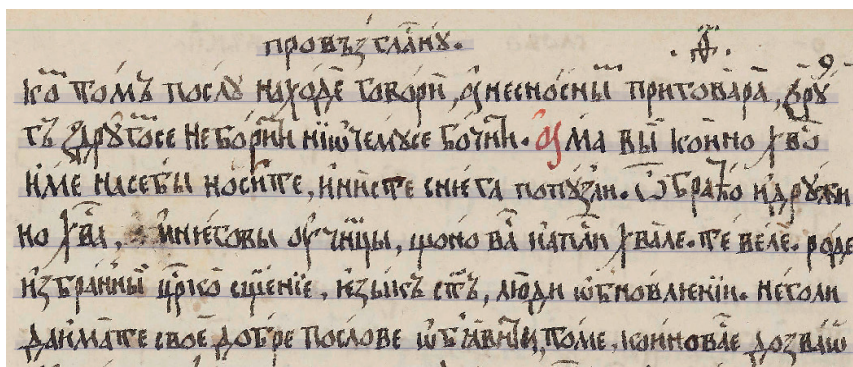 провъзгла́нꙋ. д҃.
9
ко̑ то́мъ послꙋ находе̑ говорѝ, ꙋ҆ несно́сны приговара̑, дрꙋ̑
гъ з̾дрꙋ́гог̑се небо́рѝй ниѡ҆чемꙋсе бо́чѝй. ꙋ҆ ма вы̑ ко́ино хво̑
и҆́ме насебы носи́те, и҆ни́сте сне́га попꙋзли. Ѡ҆ бра́ћо и҆дрꙋ́жи
но хв̑а, и҆него́вы ᲂу҆чн҃цы, що́но ва̑ и҆апл҃и хва́ле. те велѐ. роде
и҆збра́нный цр҃ко сщ҃е́нїе, и҆зы́къ ст҃ъ, лю́ди ѡ҆бновле́нїи. не́голи
даима́те своѐ до́бре посло́ве ѡ҆б̾ꙗ́влѝй, по́ме, ко́иновае дозва̑ш